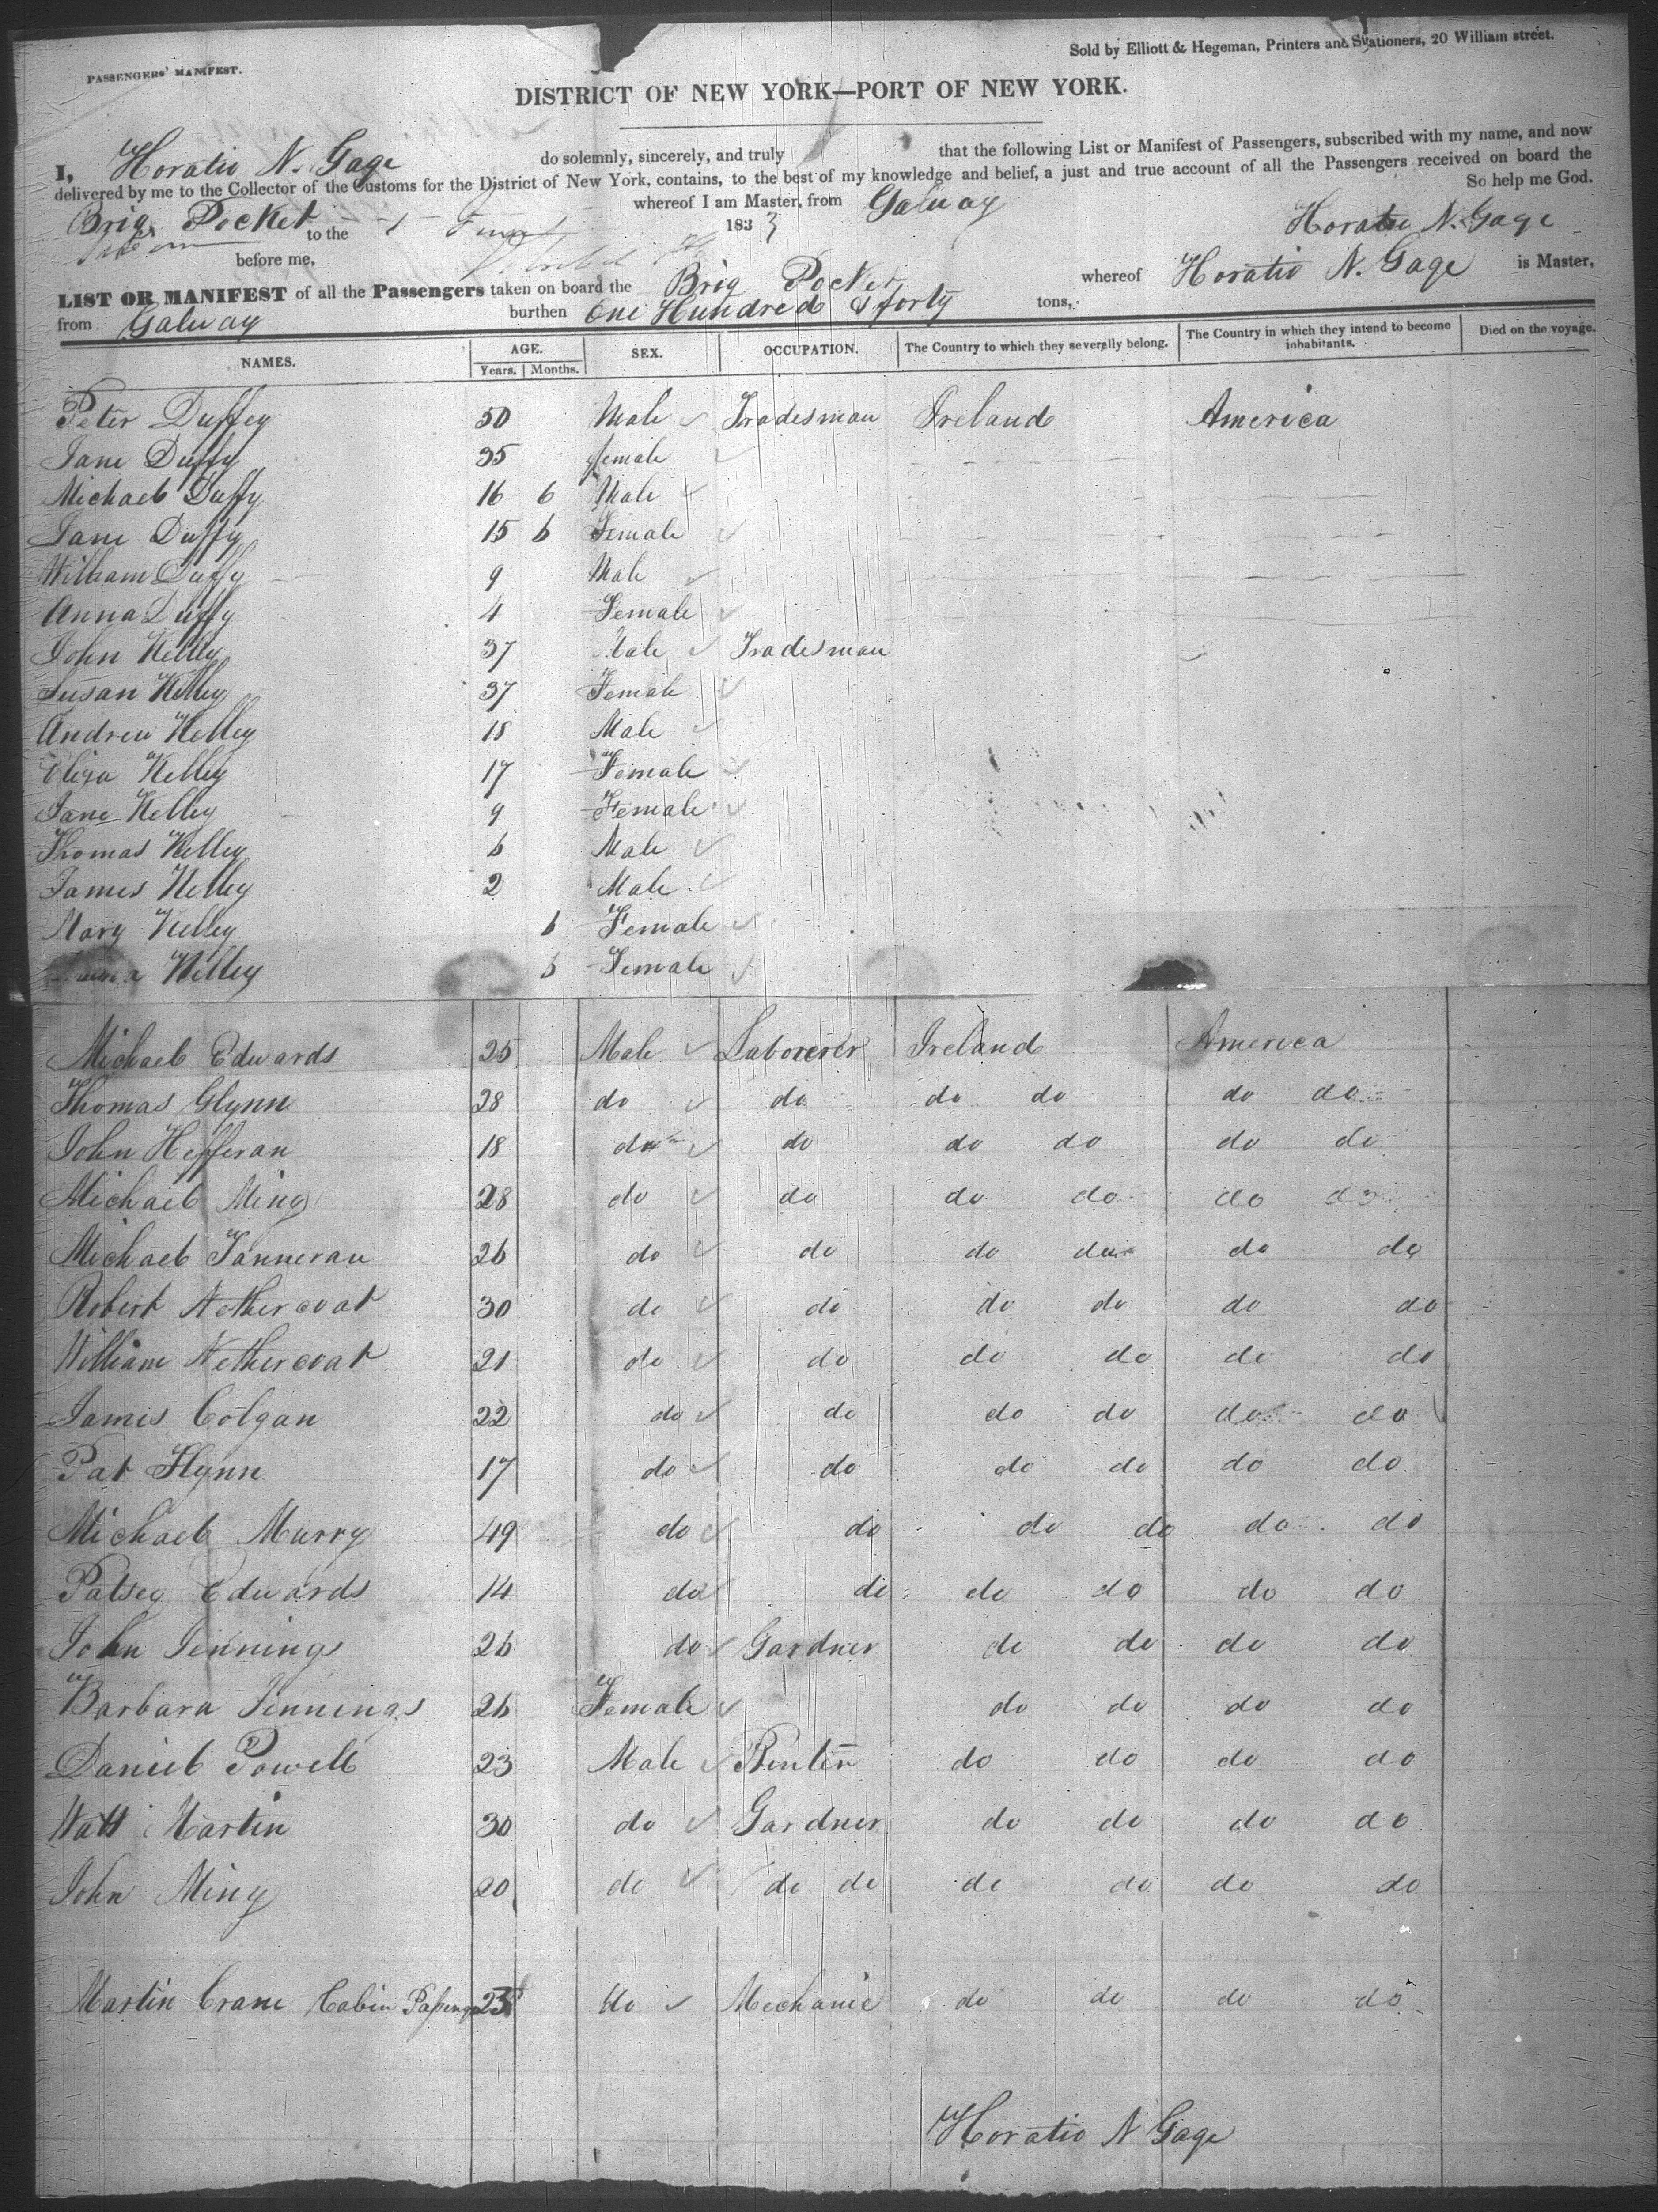 Sold by Elliott & Hegeman, Printers and Stationers, 20 William street.
PASSENGERS' MANIFEST.
DISTRICT OF NEW YORK—PORT OF NEW YORK.
I, Horatio N. Gage do solemnly, sincerely, and truly that the following List or Manifest of Passengers, subscribed with my name, and now
delivered by me to the Collector of the Customs for the District of New York, contains, to the best of my knowledge and belief, a just and true account of all the Passengers received on board the
Brig Pocket whereof I am Master, from Galway So help me God.
to the 1833 Horatio N. Gage
before me,
LIST OR MANIFEST of all the Passengers taken on board the Brig Pocket whereof Horatio N. Gage is Master,
from Galway burthen One Hundred & forty tons,
NAMES. AGE. SEX. OCCUPATION. The Country to which they severally belong. The Country in which they intend to become inhabitants. Died on the voyage.
Years. Months.
Peter Duffey 50 Male Tradesman Ireland America
Jane Duffy 35 female
Michael Duffy 16 6 Male
Jane Duffy 15 6 Female
William Duffy 9 Male
Anna Duffy 4 Female
John Kelley 37 Male Tradesman
Susan Kelley 37 Female
Andrew Kelley 18 Male
Eliza Kelley 17 Female
Jane Kelley 9 Female
Thomas Kelley 6 Male
James Kelley 2 Male
Mary Kelley 6 Female
Kelley 6 Female
Michael Edwards 25 Male Laborerer Ireland America
Thomas Glynn 28 do do do do do do
John Hefferan 18 do do do do do do
Michael Ming 28 do do do do do do
Michael Tanneran 26 do do do do do do
Robert Nethercoat 30 do do do do do do
William Nethercoat 21 do do do do do do
James Colgan 22 do do do do do do
Pat Flynn 17 do do do do do do
Michael Murry 49 do do do do do do
Patsey Edwards 14 do do do do do do
John Jennings 26 do Gardner do do do do
Barbara Jennings 26 Female do do do do
Daniel Powell 23 Male do do do do
Watt Martin 30 do Gardner do do do do
John Ming 20 do do do do do do do
Martin Crane Cabin Passenger 23 do Mechanic do do do do
Horatio N Gage